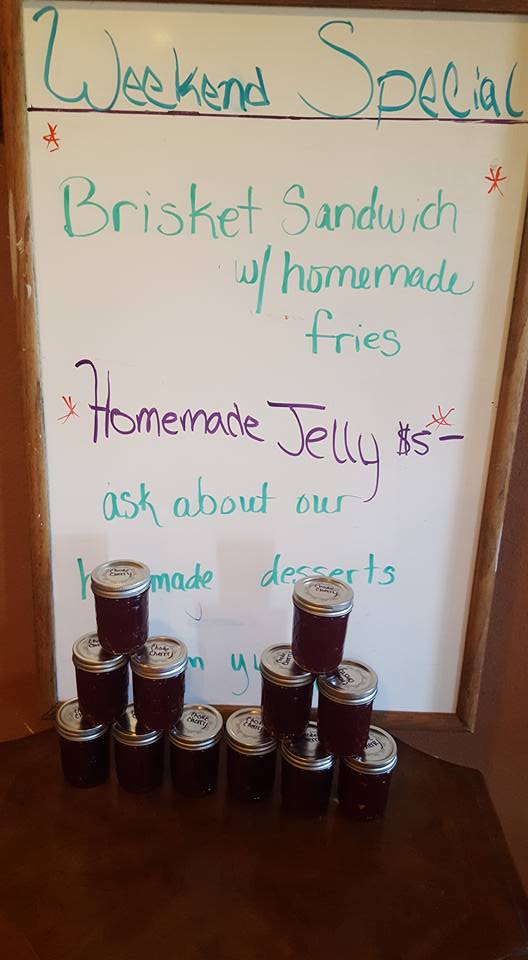 Weekend Special
Brisket Sandwich
w/ homemade
fries
Homemade Jelly $5-
ask about our
made desserts
Choke
Cherry
Choke
Cherry
Choke
Cherry
Choke
Cherry
Choke
Cherry